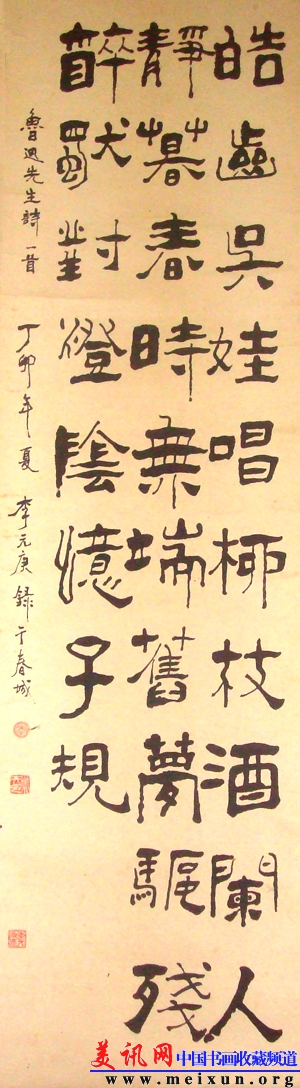 皓齒吳娃唱柳枝酒闌人
靜暮春時無端舊夢驅殘
醉獨對燈陰憶子規
魯迅先生詩一首 丁卯年夏 李元庚錄于春城
美讯网 中国书画收藏频道
www.meixun.org